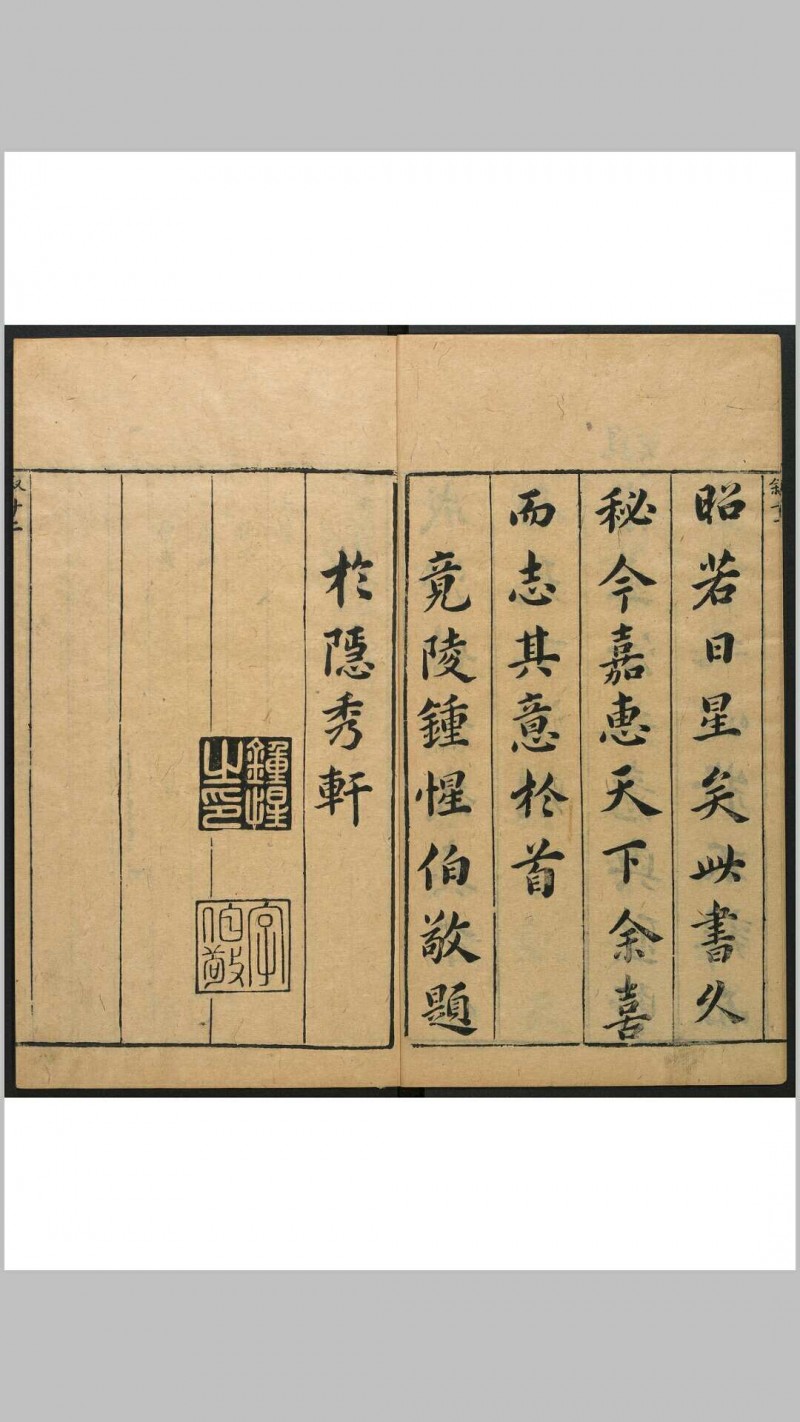 昭若日星矣此書久
秘今嘉惠天下余喜
而志其意於首
竟陵鍾惺伯敬題
於隱秀軒
鍾惺之印
字伯敬